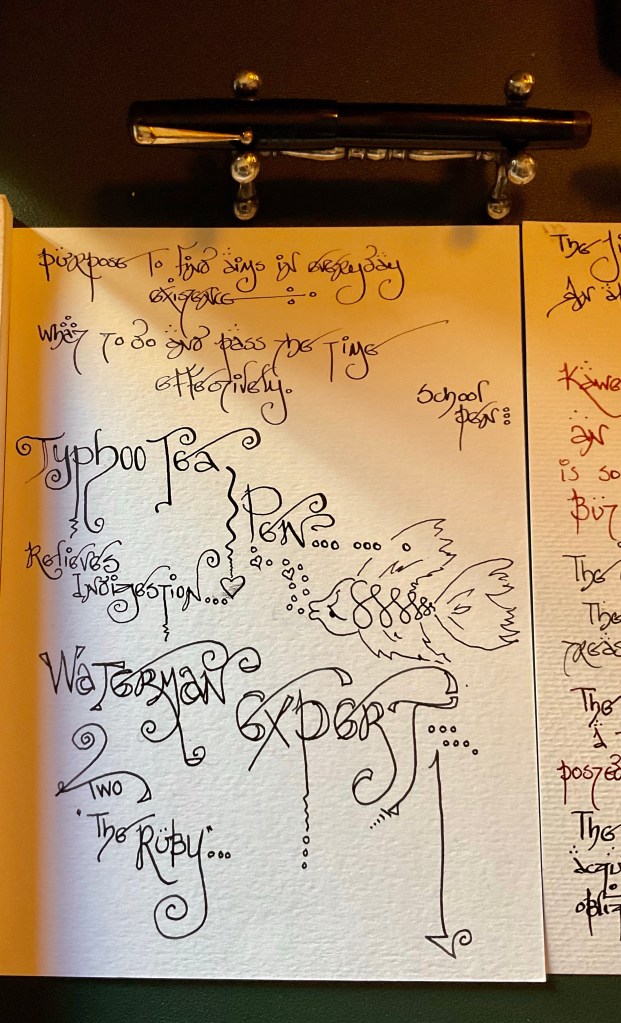 Purpose To find aims in everyday
existence
What to do and pass the time
effectively.
School
pen:
Typhoo Tea
Pen... ... .
Relieves
Indigestion...
Waterman
expert...
2
Two
"The Ruby"...
The
An
Kawe
an
is so
But
The
The
treas
The
posted
The